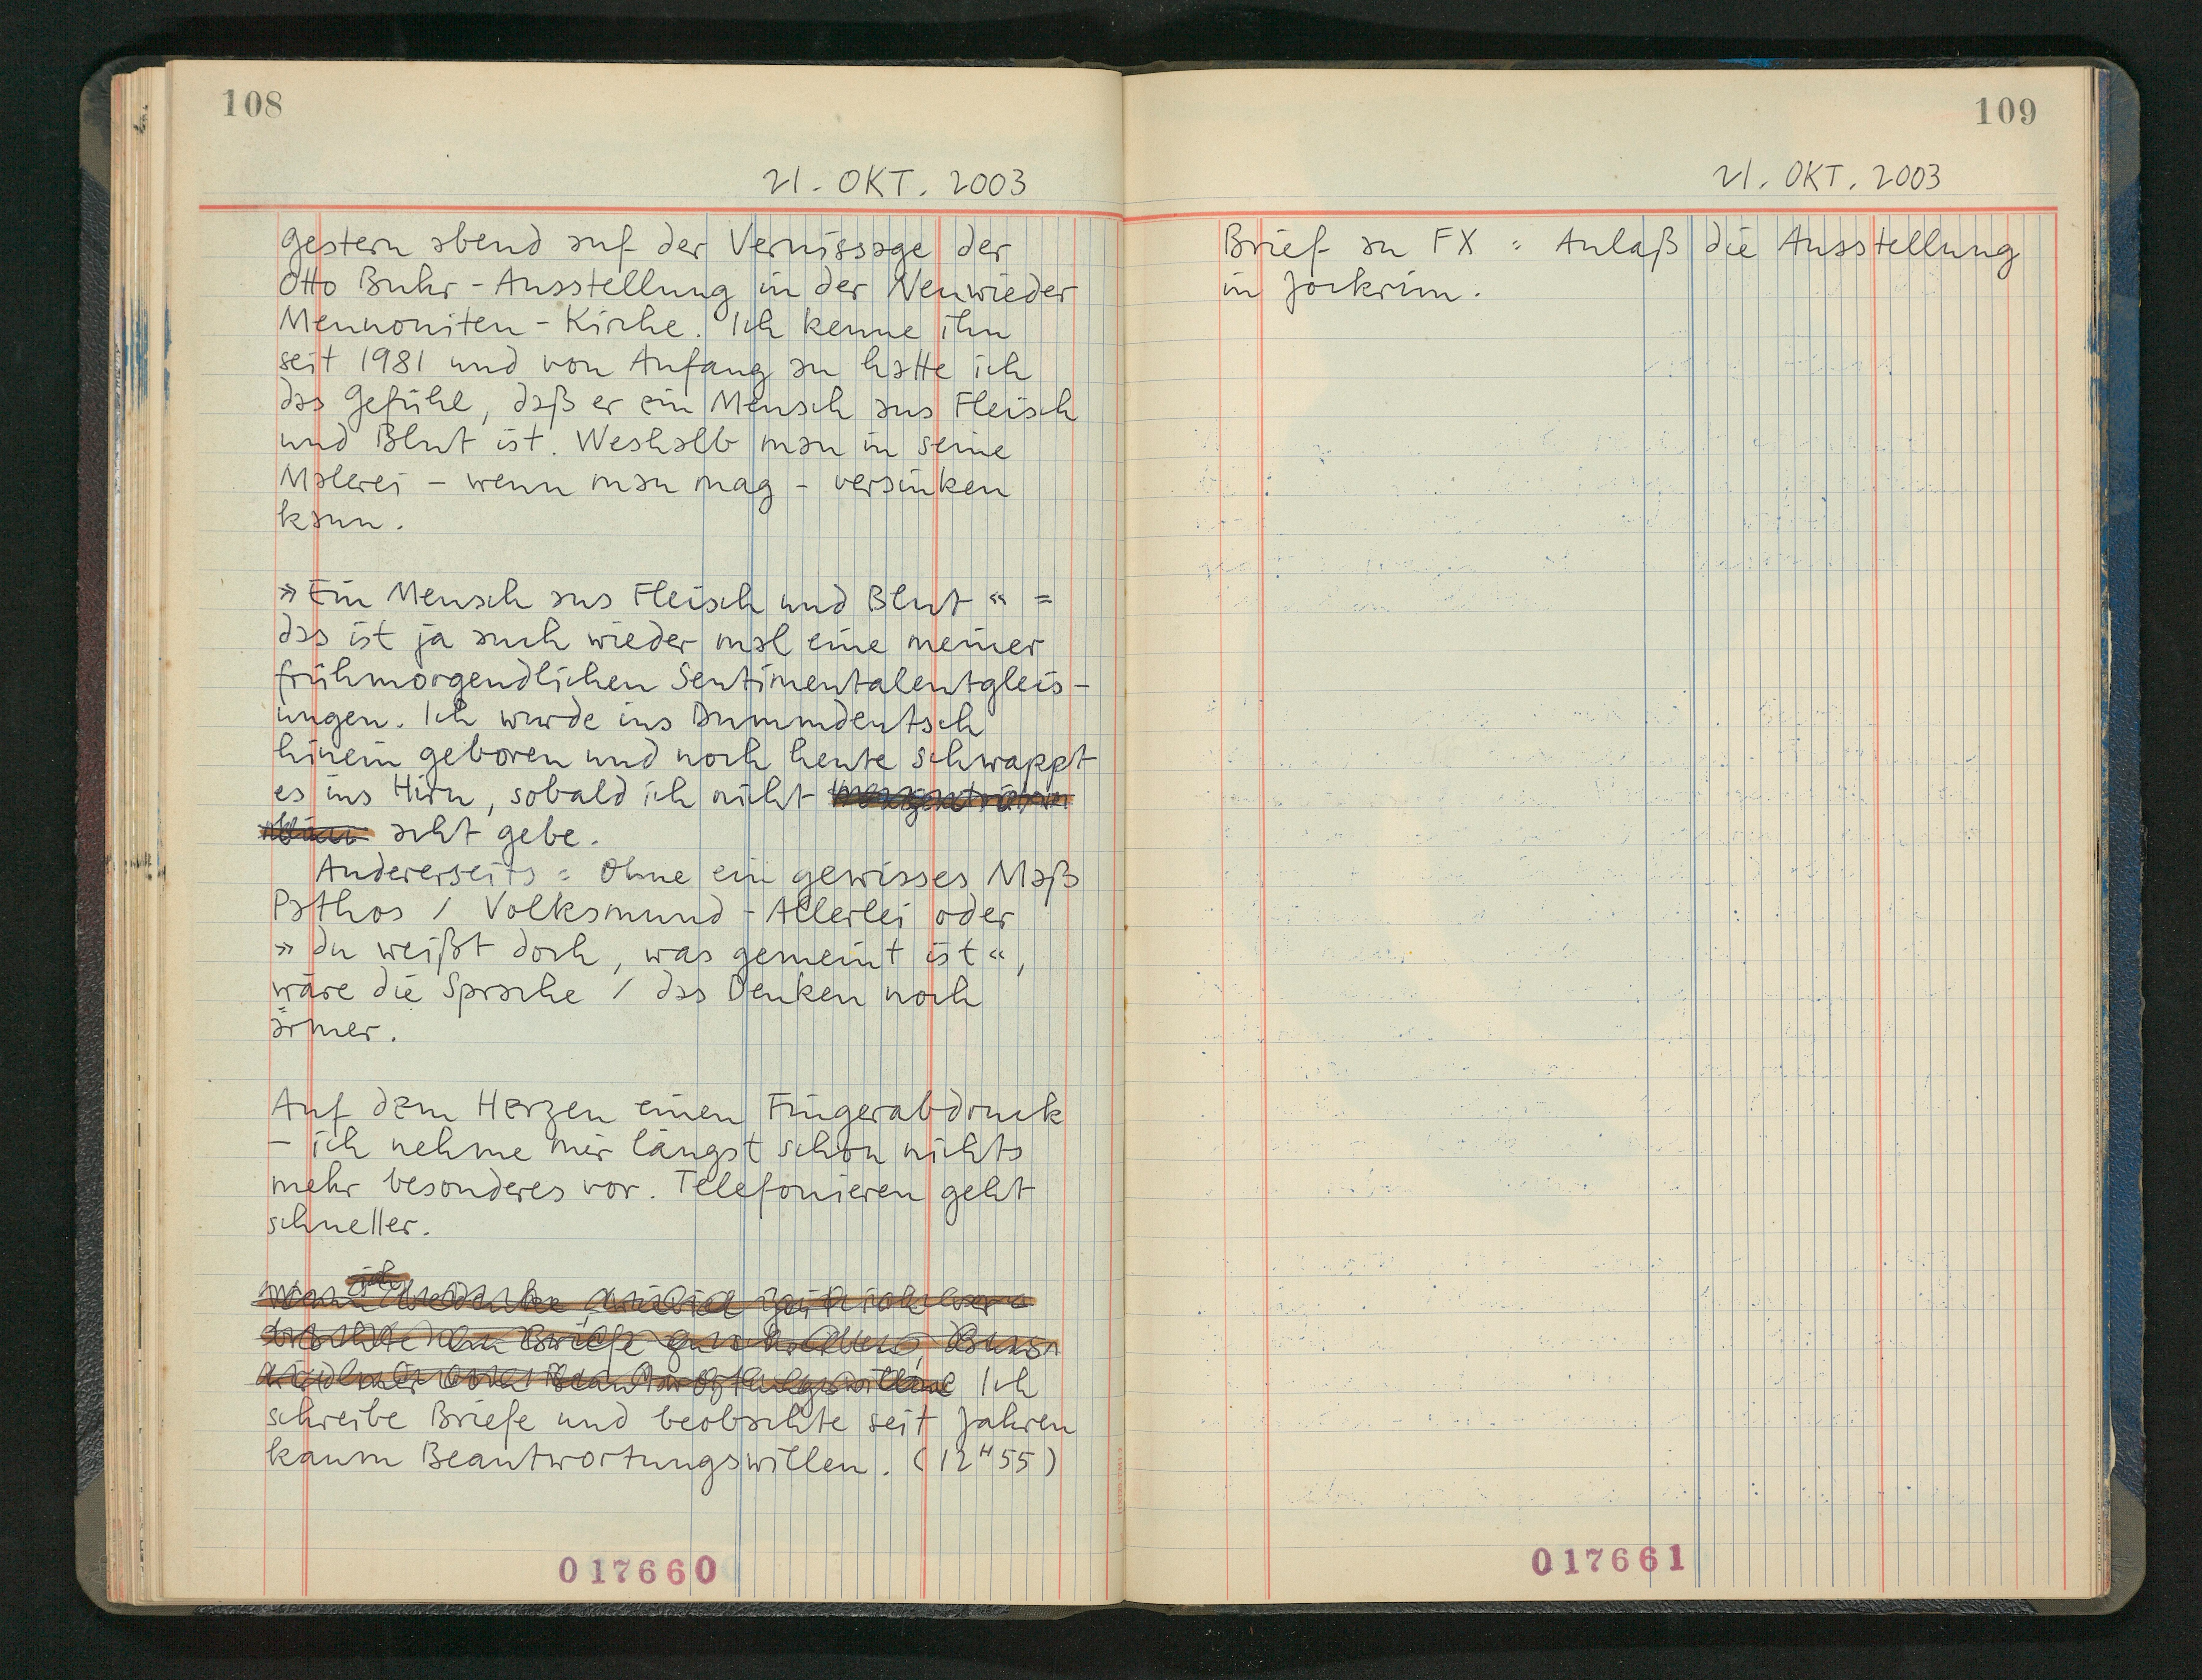 108
21. OKT. 2003
gestern abend auf der Vernissage der
Otto Buhr-Ausstellung in der Neuwieder
Mennoniten-Kirche. Ich kenne ihn
seit 1981 und von Anfang an hatte ich
das Gefühl, daß er ein Mensch aus Fleisch
und Blut ist. Weshalb man in seine
Malerei – wenn man mag – versinken
kann.
»Ein Mensch aus Fleisch und Blut« =
das ist ja auch wieder mal eine meiner
frühmorgendlichen Sentimentalentgleis-
ungen. Ich wurde ins Dummdeutsch
hinein geboren und noch heute schwappt
es ins Hirn, sobald ich nicht
acht gebe.
Andererseits = Ohne ein gewisses Maß
Pathos / Volksmund-Allerlei oder
»du weißt doch, was gemeint ist«,
wäre die Sprache / das Denken noch
ärmer.
Auf dem Herzen einen Fingerabdruck
– ich nehme mir längst schon nichts
mehr besonderes vor. Telefonieren geht
schneller.
ich
Ich
schreibe Briefe und beobachte seit Jahren
kaum Beantwortungswillen. (12H55)
017660
109
21. OKT. 2003
Brief an FX = Anlaß die Ausstellung
in Jockrim.
017661